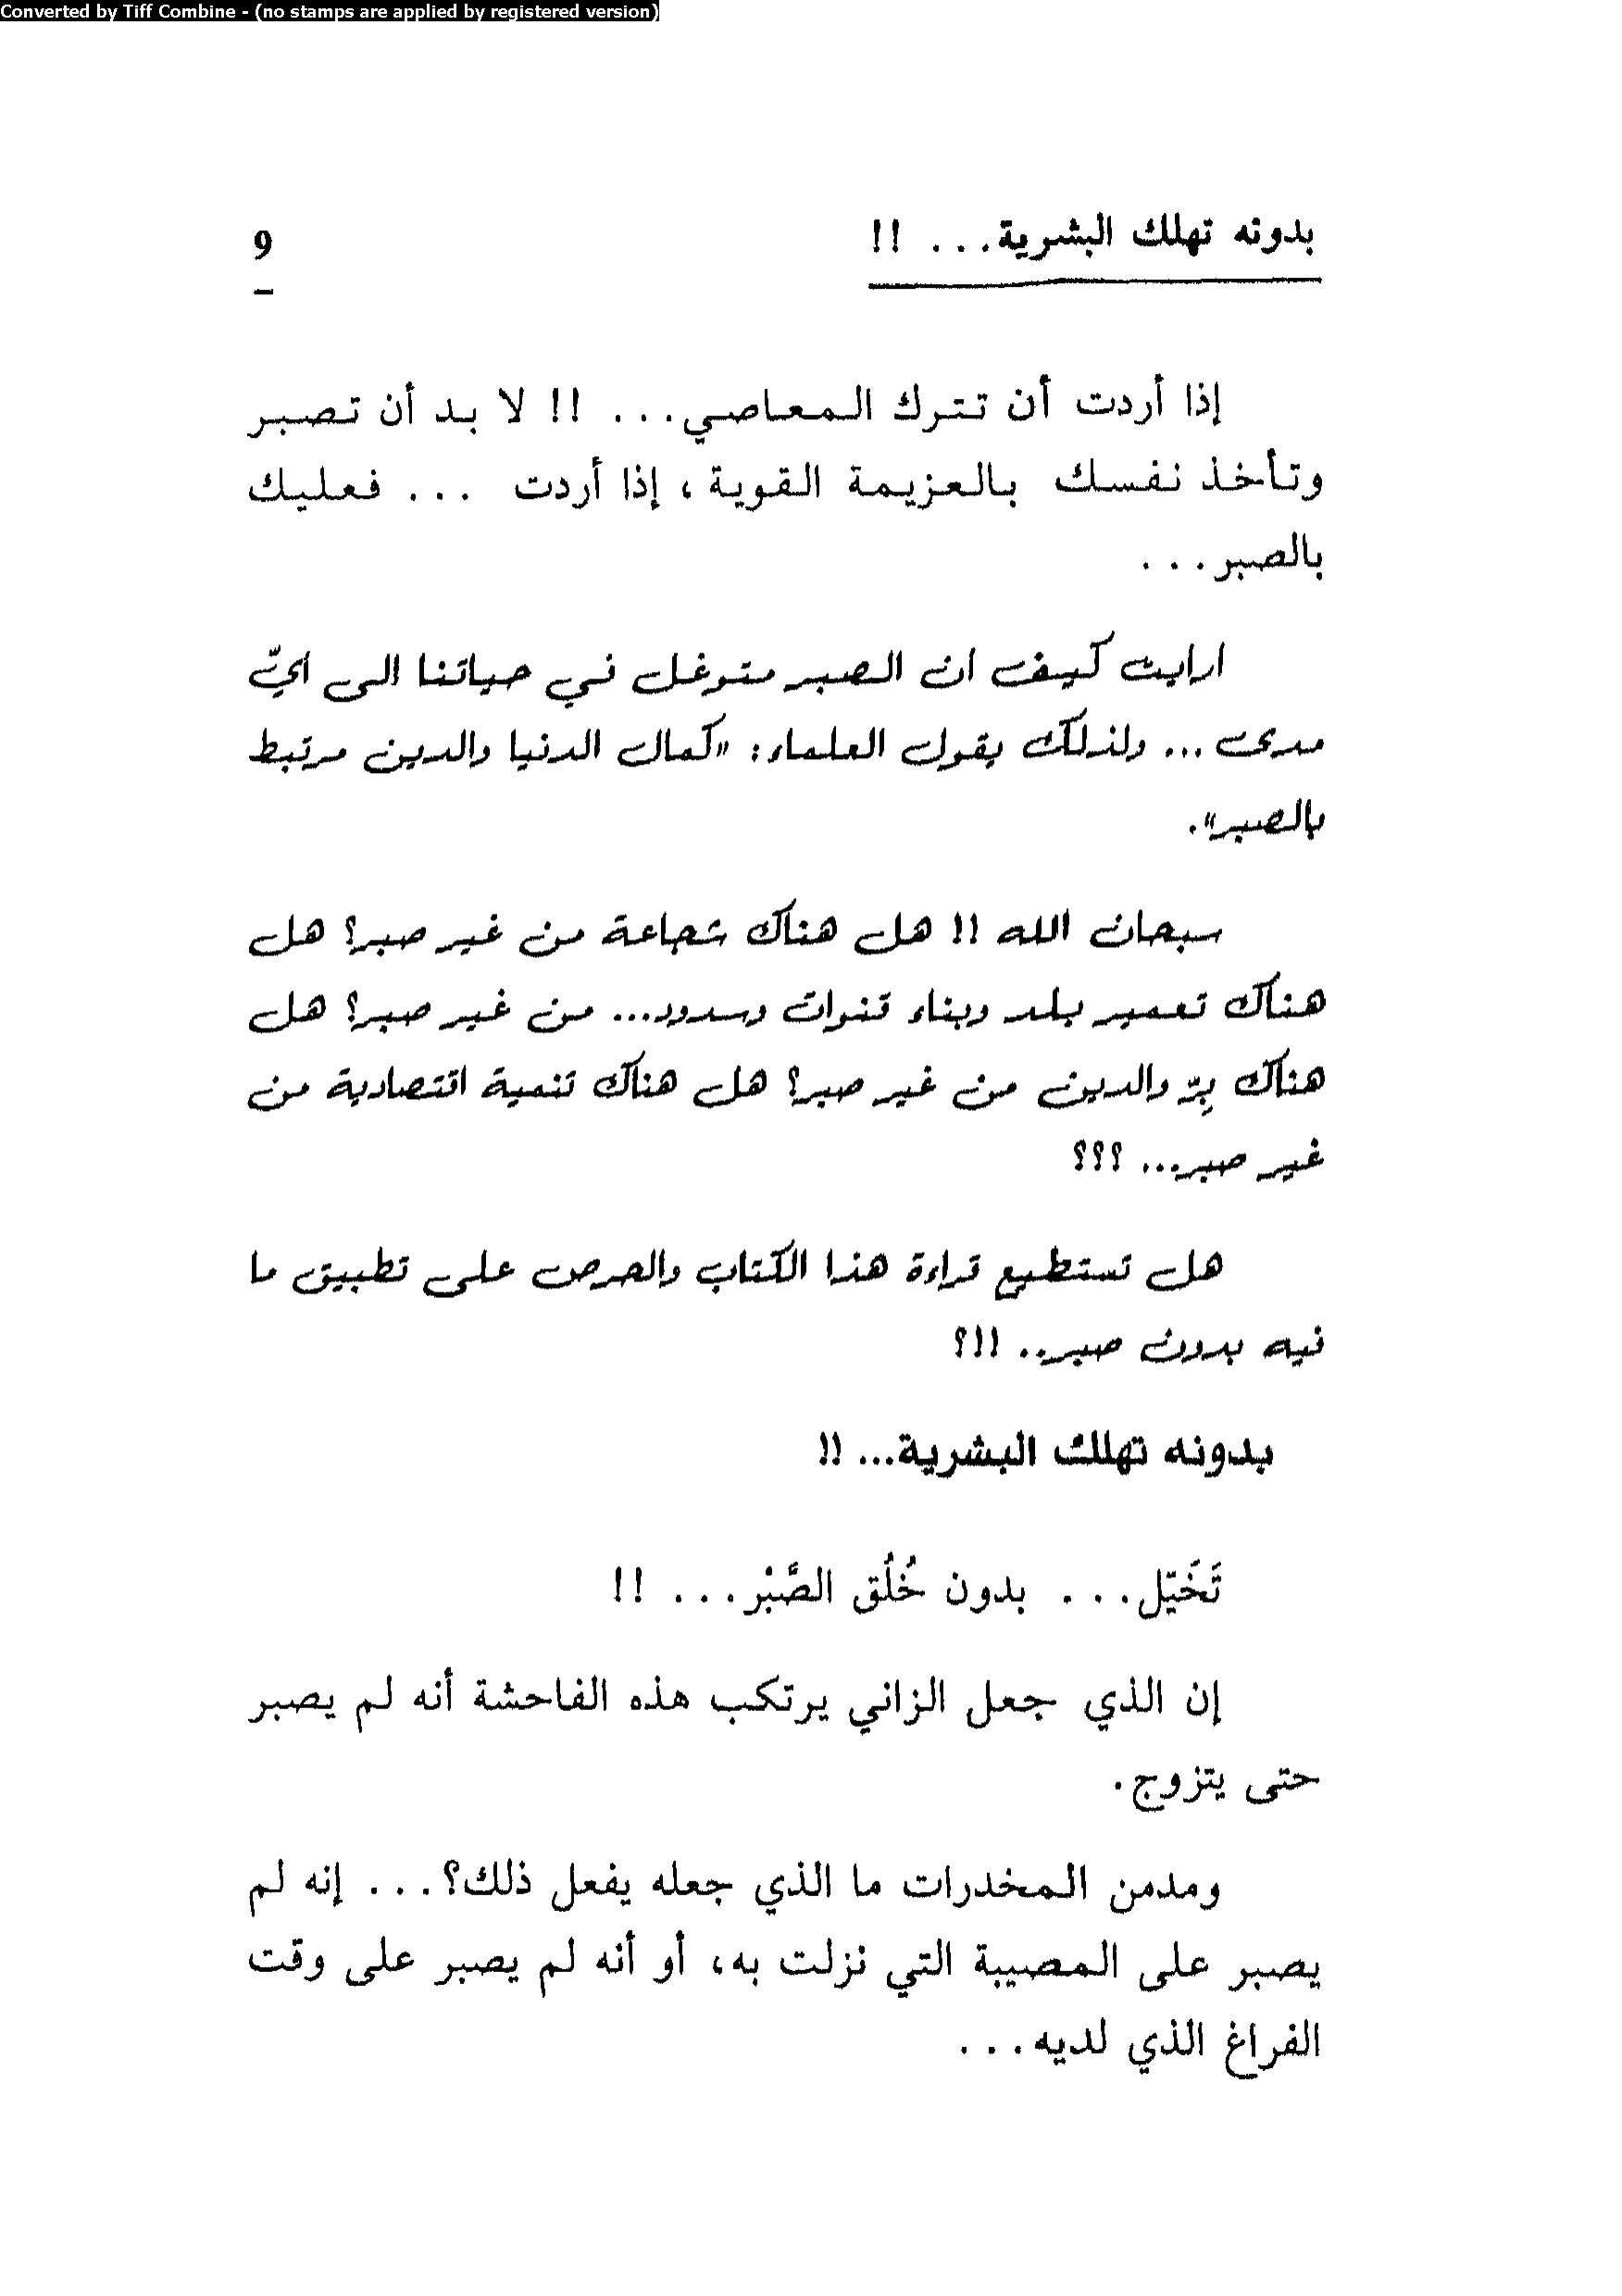 Converted by Tiff Combine - (no stamps are applied by registered version)
بدونه تهلك البشرية... !!
9
إذا أردت أن تترك المعاصي... !! لا بد أن تصبر
وتأخذ نفسك بالعزيمة القوية، إذا أردت ... فعليك
بالصبر...
أرأيت كيف أن الصبر متوغل في حياتنا إلى أيّ
مدى ... ولذلك يقول العلماء: «كمال الدنيا والدين مرتبط
بالصبر».
سبحان الله !! هل هناك شجاعة من غير صبر؟ هل
هناك تعمير بلد وبناء قنوات وسدود... من غير صبر؟ هل
هناك بِرّ والدين من غير صبر؟ هل هناك تنمية اقتصادية من
غير صبر... ؟؟؟
هل تستطيع قراءة هذا الكتاب والحرص على تطبيق ما
فيه بدون صبر.. !!؟
بدونه تهلك البشرية... !!
تَخَيّل... بدون خُلُق الصَّبْر... !!
إن الذي جعل الزاني يرتكب هذه الفاحشة أنه لم يصبر
حتى يتزوج.
ومدمن المخدرات ما الذي جعله يفعل ذلك؟... إنه لم
يصبر على المصيبة التي نزلت به، أو أنه لم يصبر على وقت
الفراغ الذي لديه...